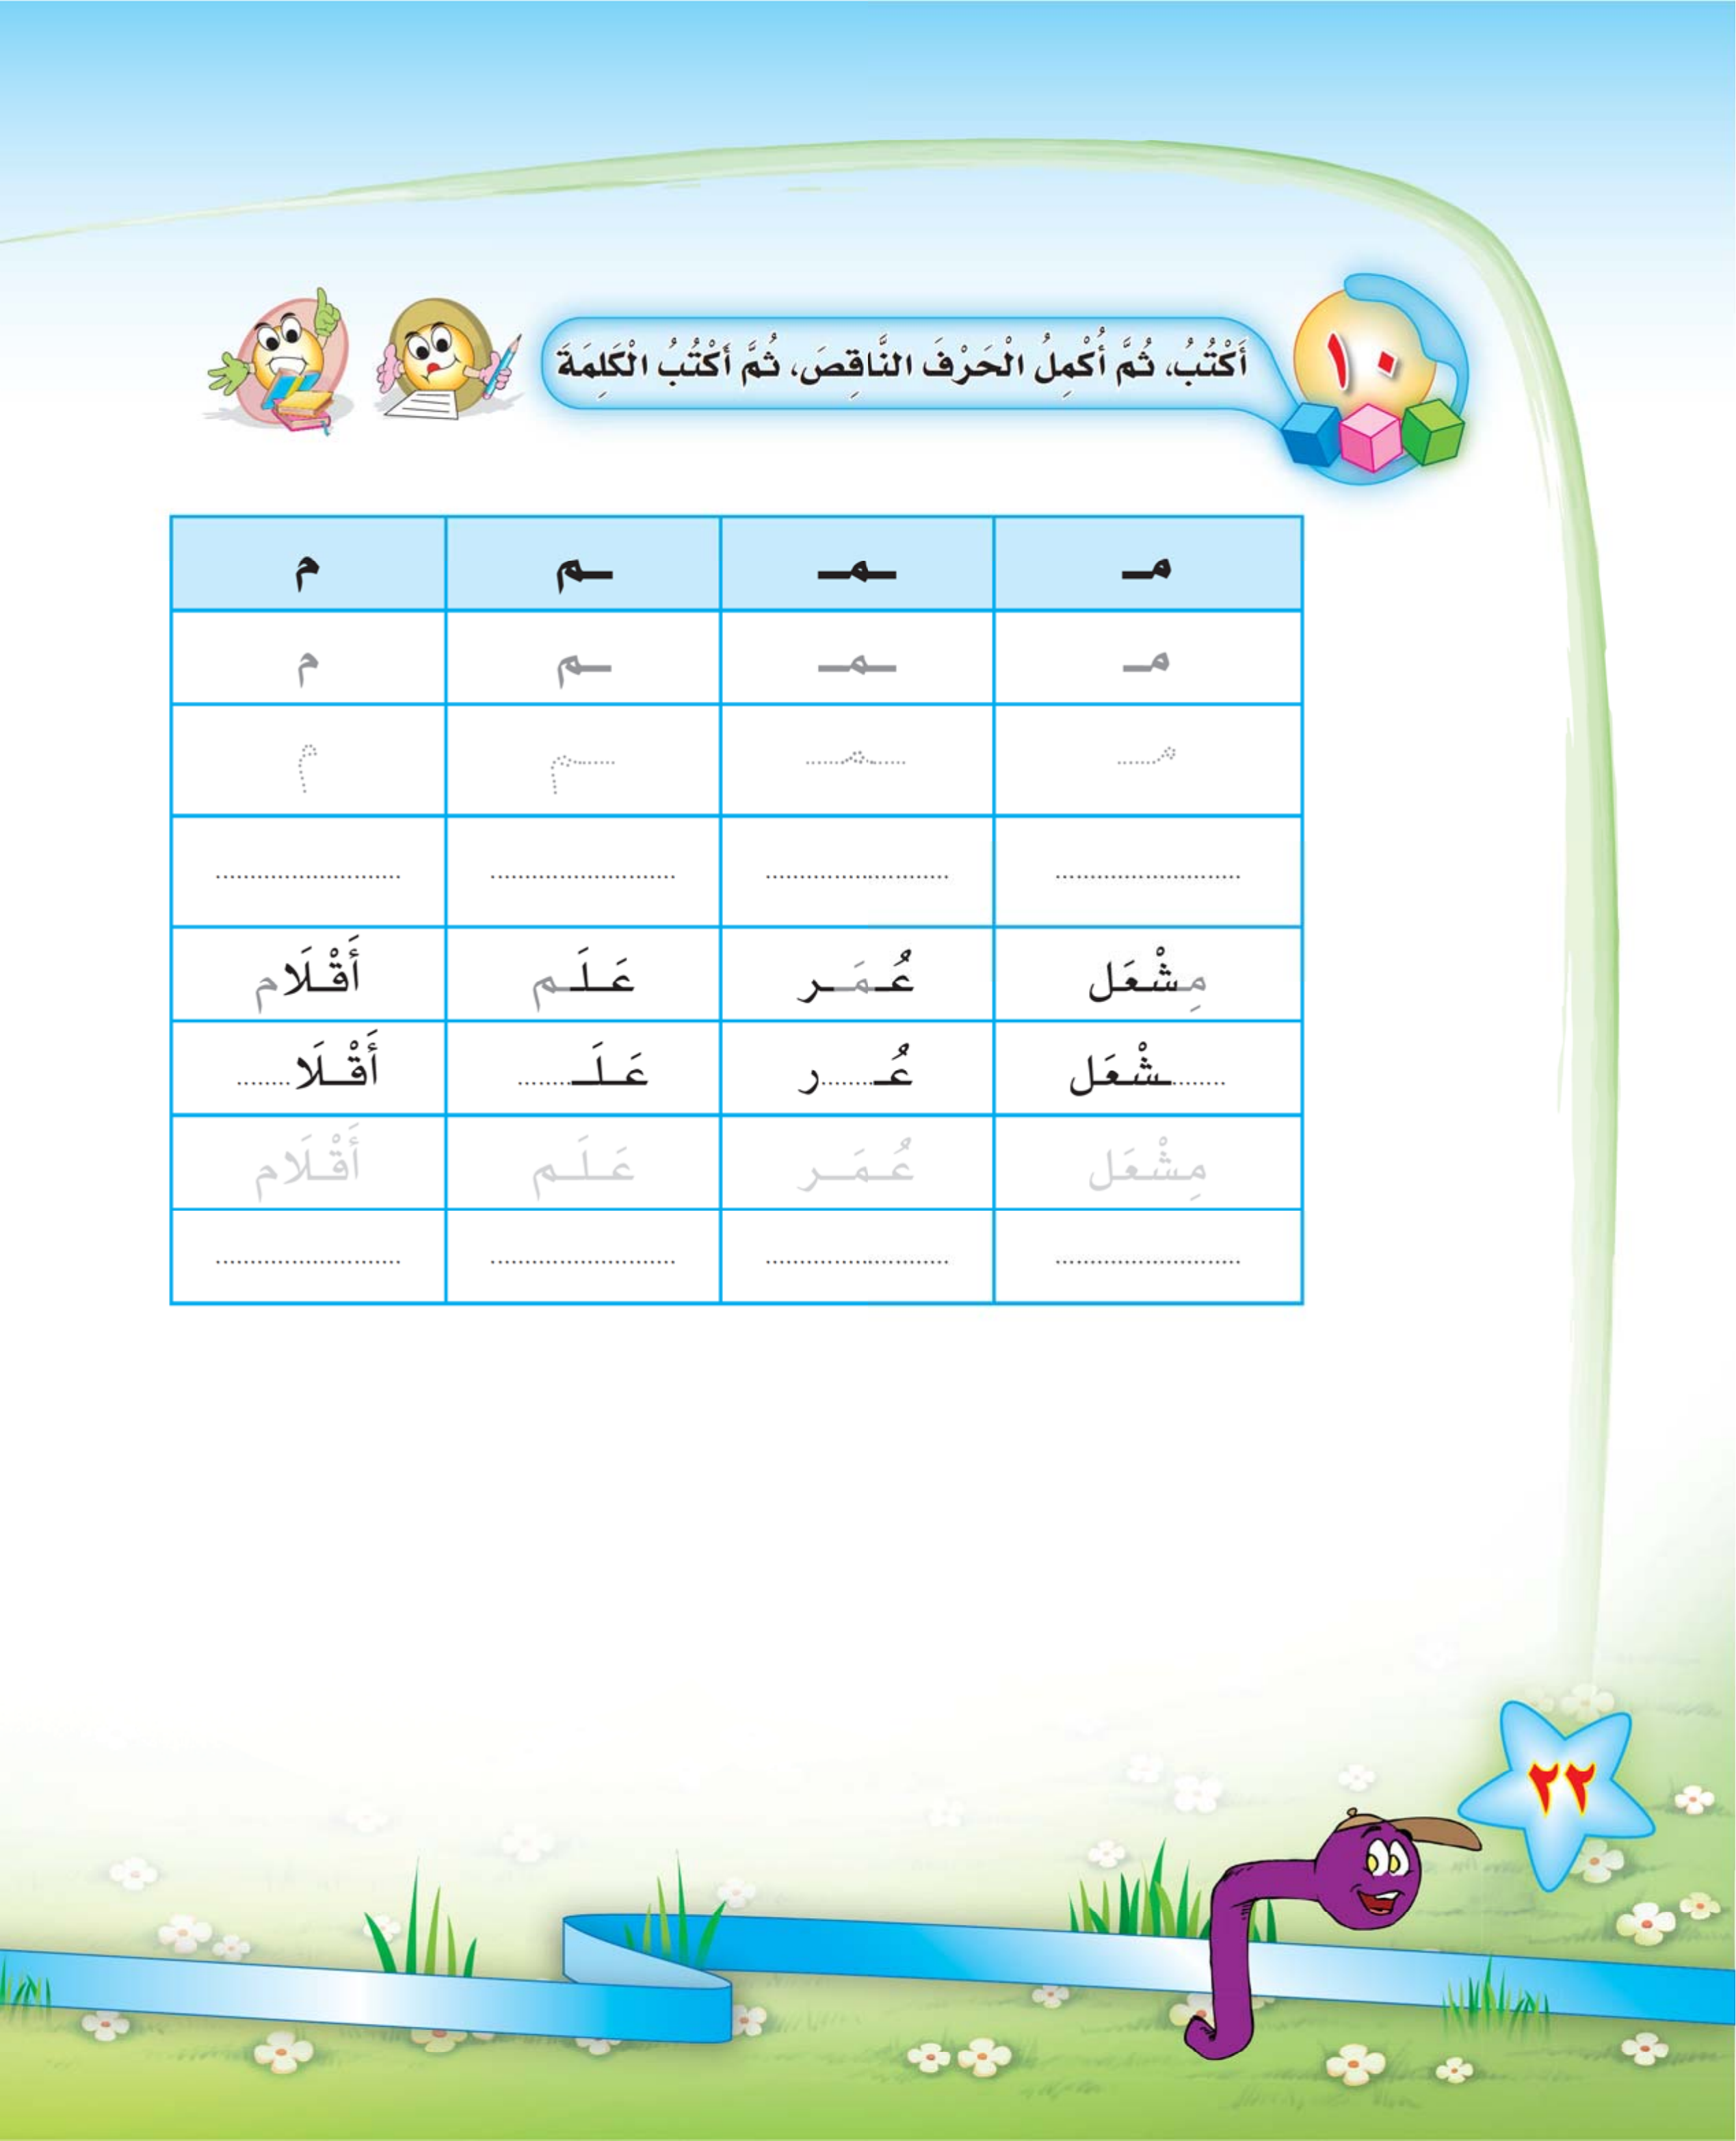 ١٠
أَكْتُبُ، ثُمَّ أُكْمِلُ الْحَرْفَ النَّاقِصَ، ثُمَّ أَكْتُبُ الْكَلِمَةَ
مـ ـمـ ـم م
مـ ـمـ ـم م
مـ ـمـ ـم م
.......................... .......................... .......................... ..........................
مِـشْعَل عُـمَـر عَـلَـم أَقْـلَام
........ـشْعَل عُـ........ر عَـلَـ........ أَقْـلَا........
مِـشْعَل عُـمَـر عَـلَـم أَقْـلَام
.......................... .......................... .......................... ..........................
٢٢